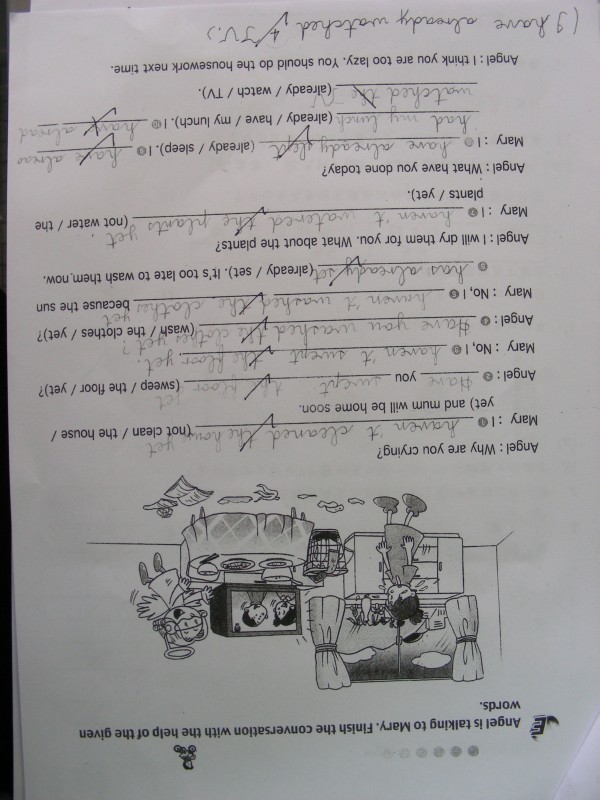 E Angel is talking to Mary. Finish the conversation with the help of the given
words.
Angel : Why are you crying?
Mary : I ① haven't cleaned the house yet (not clean / the house /
yet) and mum will be home soon.
Angel : ② Have you swept the floor yet (sweep / the floor / yet)?
Mary : No, I ③ haven't swept the floor yet.
Angel : ④ Have you washed the clothes yet? (wash / the clothes / yet)?
Mary : No, I ⑤ haven't washed the clothes yet because the sun
⑥ has already set (already / set). It's too late to wash them now.
Angel : I will dry them for you. What about the plants?
Mary : I ⑦ haven't watered the plants yet. (not water / the
plants / yet).
Angel : What have you done today?
Mary : I ⑧ have already slept (already / sleep). I ⑨ have alrea
had my lunch (already / have / my lunch). I ⑩ have alread
watched the TV (already / watch / TV).
Angel : I think you are too lazy. You should do the housework next time.
(I have already watched TV.)